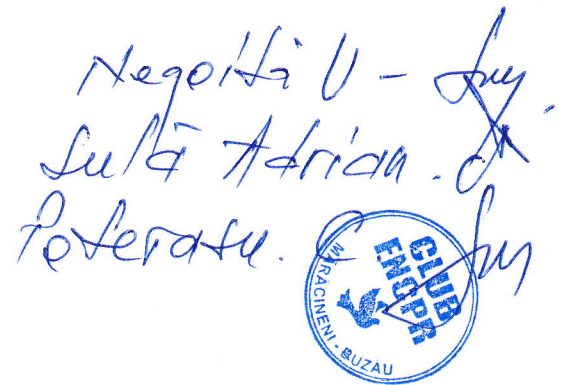 Negoiță V -
Sulă Adrian.
Poterașu. C
CLUB
ENCPR
MĂRĂCINENI - BUZĂU